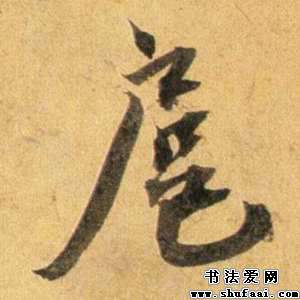 扈
书法爱网
www.shufaai.com